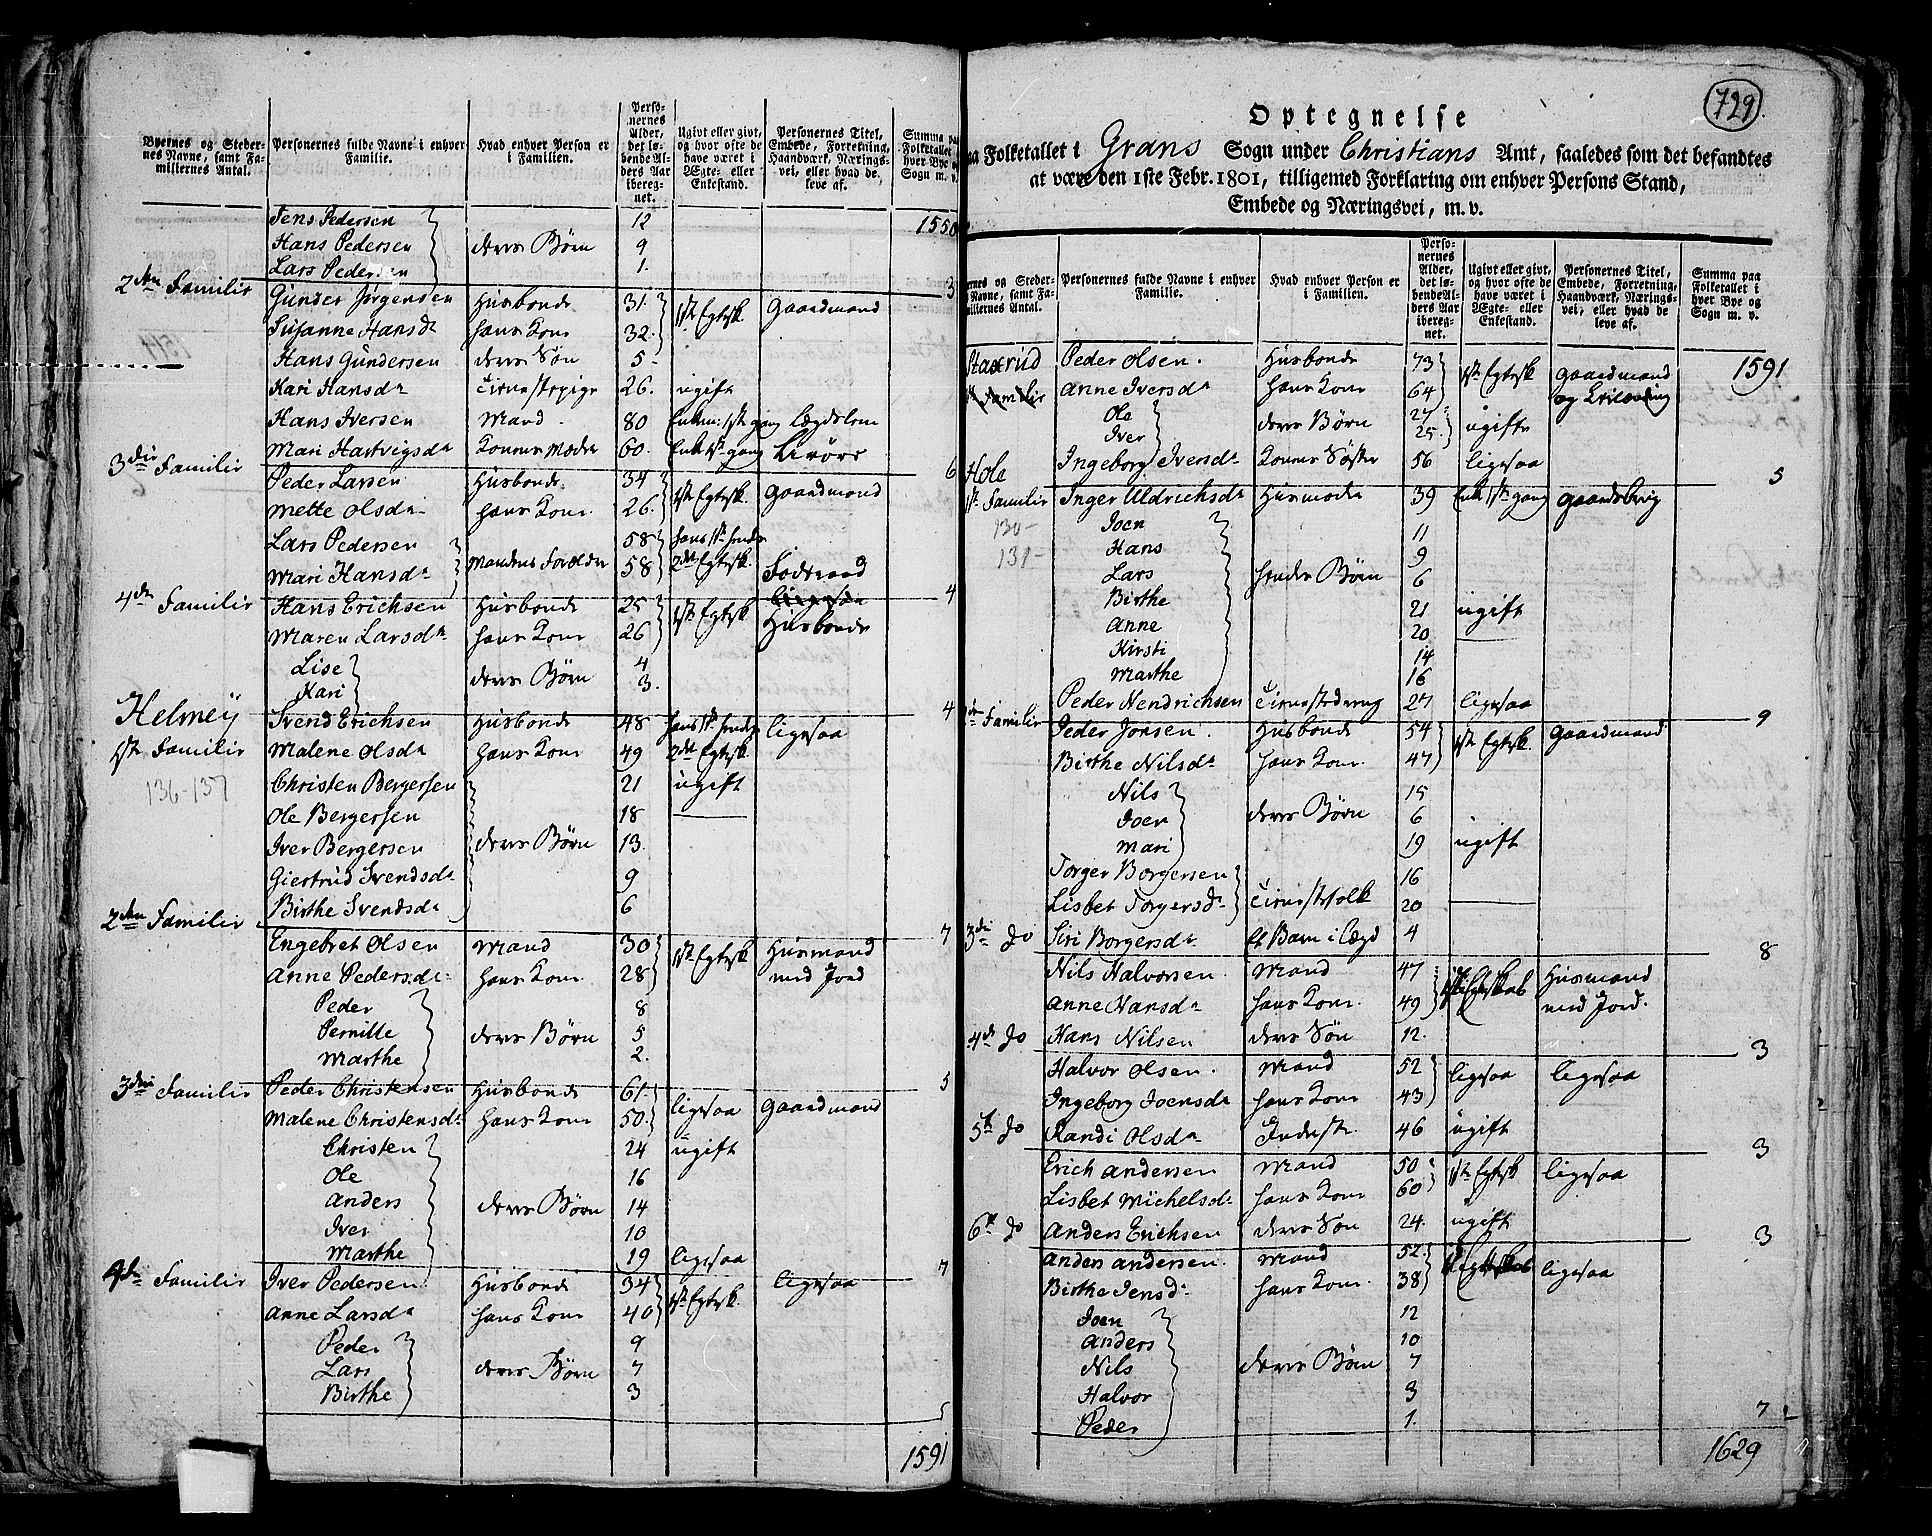 Byernes og Stedernes Navne, samt Familiernes Antal. | Personernes fulde Navne i enhver Familie. | Hvad enhver Person er i Familien. | Personernes Alder, det løbende Alders Aar iberegnet. | Ugivt eller givt, og hvor ofte de have været i Ægte- eller Enkestand. | Personernes Titel, Embede, Forretning, Haandværk, Næringsvei, eller hvad de leve af. | Summa paa Folketallet i hver Bye og Sogn m. v.
Jens Pedersen | 12 | 1550
Hans Pedersen | deres Børn | 9
Lars Pedersen | 1. | 3
2den Familie
Gunder Jørgensen | Husbonde | 31. | 1ste Egtesk | Gaardmand
Susanne Hansdr | hans Kone | 32.
Hans Gundersen | deres Søn | 5
Kari Hansdr | Tienestepige | 26. | ugift
Hans Iversen | Mand | 80 | Enkem: 1ste gang | Lægdslem
Mari Hartvigsdr | Konens Moder | 60. | Enke 1ste gang | 6
3die Familie
Peder Larsen | Husbonde | 34 | 1ste Egtesk. | Gaardmand
Mette Olsdr | hans Kone. | 26.
Lars Pedersen | Mandens Forældre | 58 | hans 1ste hendes
Mari Hansdr | 58 | 2det Egtesk. | Føderaad | 4
4de Familie
Hans Erichsen | Husbonde | 25 | 1ste Egtesk | ligesaa
Maren Larsdr | hans Kone | 26 | Husbonde
Lise | deres Børn | 4
Kari | 3. | 4
Helmey
1ste Familie
136-137
Svend Erichsen | Husbonde | 48 | hans 1ste hendes | ligesaa
Malene Olsdr | hans Kone | 49 | 2det Egtesk.
Christen Bergersen | 21 | ugift
Ole Bergersen | 18
Iver Bergersen | deres Børn | 13.
Giertrud Svendsdr | 9
Birthe Svendsdr | 6 | 7
2den Familie
Engebret Olsen | Mand | 30 | 1ste Egtesk | Husmand
Anne Pedersdr | hans Kone | 28 | med Jord
Peder | 8
Pernille | deres Børn | 5
Marthe | 2. | 5
3die Familie
Peder Christensen | Husbonde | 61. | ligesaa | Gaardmand
Malene Christensdr | hans Kone | 50.
Christen | 24 | ugift
Ole | 16
Anders | deres Børn | 14
Iver | 10
Marthe | 19 | ligesaa | 7
4de Familie
Iver Pedersen | Husbonde | 34 | 1ste Egtesk. | ligesaa
Anne Larsdr | hans Kone | 40
Peder | 9
Lars | deres Børn | 7
Birthe | 3 | 5
1591
729
Optegnelse
paa Folketallet i Grans Sogn under Christians Amt, saaledes som det befandtes
at være den 1ste Febr. 1801, tilligemed Forklaring om enhver Persons Stand,
Embede og Næringsvei, m. v.
Byernes og Stedernes Navne, samt Familiernes Antal. | Personernes fulde Navne i enhver Familie. | Hvad enhver Person er i Familien. | Personernes Alder, det løbende Alders Aar iberegnet. | Ugivt eller givt, og hvor ofte de have været i Ægte- eller Enkestand. | Personernes Titel, Embede, Forretning, Haandværk, Næringsvei, eller hvad de leve af. | Summa paa Folketallet i hver Bye og Sogn m. v.
Staxrud | Peder Olsen. | Husbonde | 73 | 1ste Egtesk | Gaardmand | 1591
1ste Familie | Anne Iversdr | hans Kone | 64 | og
Ole | deres Børn | 27 | ugifte
Iver | 25.
Ingeborg Iversdr | Konens Søster | 56 | ligesaa | 5
Hole
1ste Familie | Inger Uldrichsdr | Husmoder | 39 | Enke 1ste gang | Gaardbrug
130-
131-
Joen | 11
Hans | 9
Lars | hendes Børn | 6
Birthe | 21 | ugift
Anne | 20
Kirsti | 14
Marthe | 16
Peder Hendrichsen | Tienestedreng | 27 | ligesaa | 9
2den Familie
Peder Jonsen. | Husbonde | 54 | 1ste Egtesk. | Gaardmand
Birthe Nilsdr | hans Kone. | 47
Nils | 15
Joen | deres Børn | 6
Mari | 19 | ugift
Torger Borgersen | Tienestefolk | 16
Lisbet Torgersdr | 20
Siri Borgersdr | et Barn i Lægd | 4 | 8
3die do
Nils Halvorsen | Mand | 47 | 1ste Egteskab | Husmand
Anne Hansdr | hans Kone. | 49 | med Jord.
Hans Nilsen | deres Søn | 12. | 3
4de do
Halvor Olsen. | Mand | 52 | ligesaa | ligesaa
Ingeborg Joensdr | hans Kone | 43
Randi Olsdr | Inderste | 46 | ugift | 3
5te do
Erich Andersen | Mand | 50 | 1ste Egtesk | ligesaa
Lisbet Michelsdr | hans Kone | 60
Anders Erichsen | deres Søn | 24. | ugift | 3
6te do
Anders Andersen. | Mand | 52. | 1ste Egteskab | ligesaa
Birthe Jensdr | hans Kone. | 38
Joen | 12
Anders | 10
Nils | deres Børn | 7
Halvor | 3
Peder | 1. | 7
1629